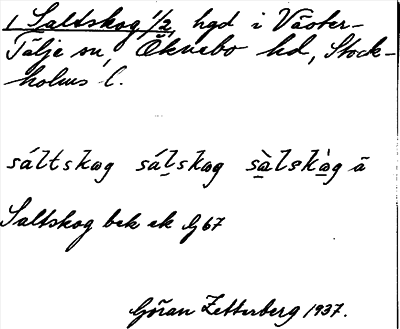 1 Saltskog 1/2, hgd i Väster-
Tälje sn, Öknebo hd, Stock-
holms l.
sáltskog sál̠skog sà̠lskà̠g ä
Saltskog bek ek G 67
Göran Zetterberg 1937.